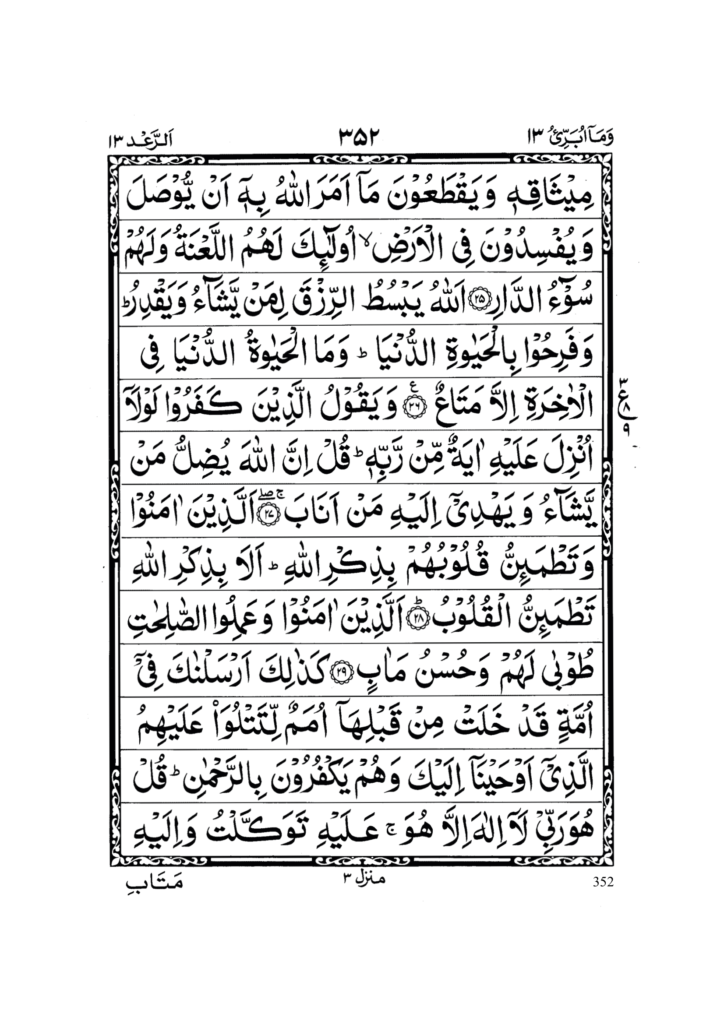 وَمَآ اُبَرِّئُ ١٣ ٣٥٢ اَلرَّعْد ١٣
مِيْثَاقِهٖ وَيَقْطَعُوْنَ مَآ اَمَرَ اللّٰهُ بِهٖٓ اَنْ يُّوْصَلَ
وَيُفْسِدُوْنَ فِى الْاَرْضِ ۙ اُولٰٓئِكَ لَهُمُ اللَّعْنَةُ وَلَهُمْ
سُوْٓءُ الدَّارِ ﴿٢٥﴾ اَللّٰهُ يَبْسُطُ الرِّزْقَ لِمَنْ يَّشَآءُ وَيَقْدِرُ ؕ
وَفَرِحُوْا بِالْحَيٰوةِ الدُّنْيَا ؕ وَمَا الْحَيٰوةُ الدُّنْيَا فِى
الْاٰخِرَةِ اِلَّا مَتَاعٌ ﴿٢٦﴾ ع وَيَقُوْلُ الَّذِيْنَ كَفَرُوْا لَوْلَآ
اُنْزِلَ عَلَيْهِ اٰيَةٌ مِّنْ رَّبِّهٖ ؕ قُلْ اِنَّ اللّٰهَ يُضِلُّ مَنْ
يَّشَآءُ وَيَهْدِىْٓ اِلَيْهِ مَنْ اَنَابَ ﴿٢٧﴾ ۖۚ اَلَّذِيْنَ اٰمَنُوْا
وَتَطْمَئِنُّ قُلُوْبُهُمْ بِذِكْرِ اللّٰهِ ؕ اَلَا بِذِكْرِ اللّٰهِ
تَطْمَئِنُّ الْقُلُوْبُ ﴿٢٨﴾ ؕ اَلَّذِيْنَ اٰمَنُوْا وَعَمِلُوا الصّٰلِحٰتِ
طُوْبٰى لَهُمْ وَحُسْنُ مَاٰبٍ ﴿٢٩﴾ كَذٰلِكَ اَرْسَلْنٰكَ فِىْٓ
اُمَّةٍ قَدْ خَلَتْ مِنْ قَبْلِهَآ اُمَمٌ لِّتَتْلُوَا۟ عَلَيْهِمُ
الَّذِىْٓ اَوْحَيْنَآ اِلَيْكَ وَهُمْ يَكْفُرُوْنَ بِالرَّحْمٰنِ ؕ قُلْ
هُوَ رَبِّىْ لَآ اِلٰهَ اِلَّا هُوَ ۚ عَلَيْهِ تَوَكَّلْتُ وَاِلَيْهِ
٣
ع ٨
٩
مَتَابِ منزل ٣ 352